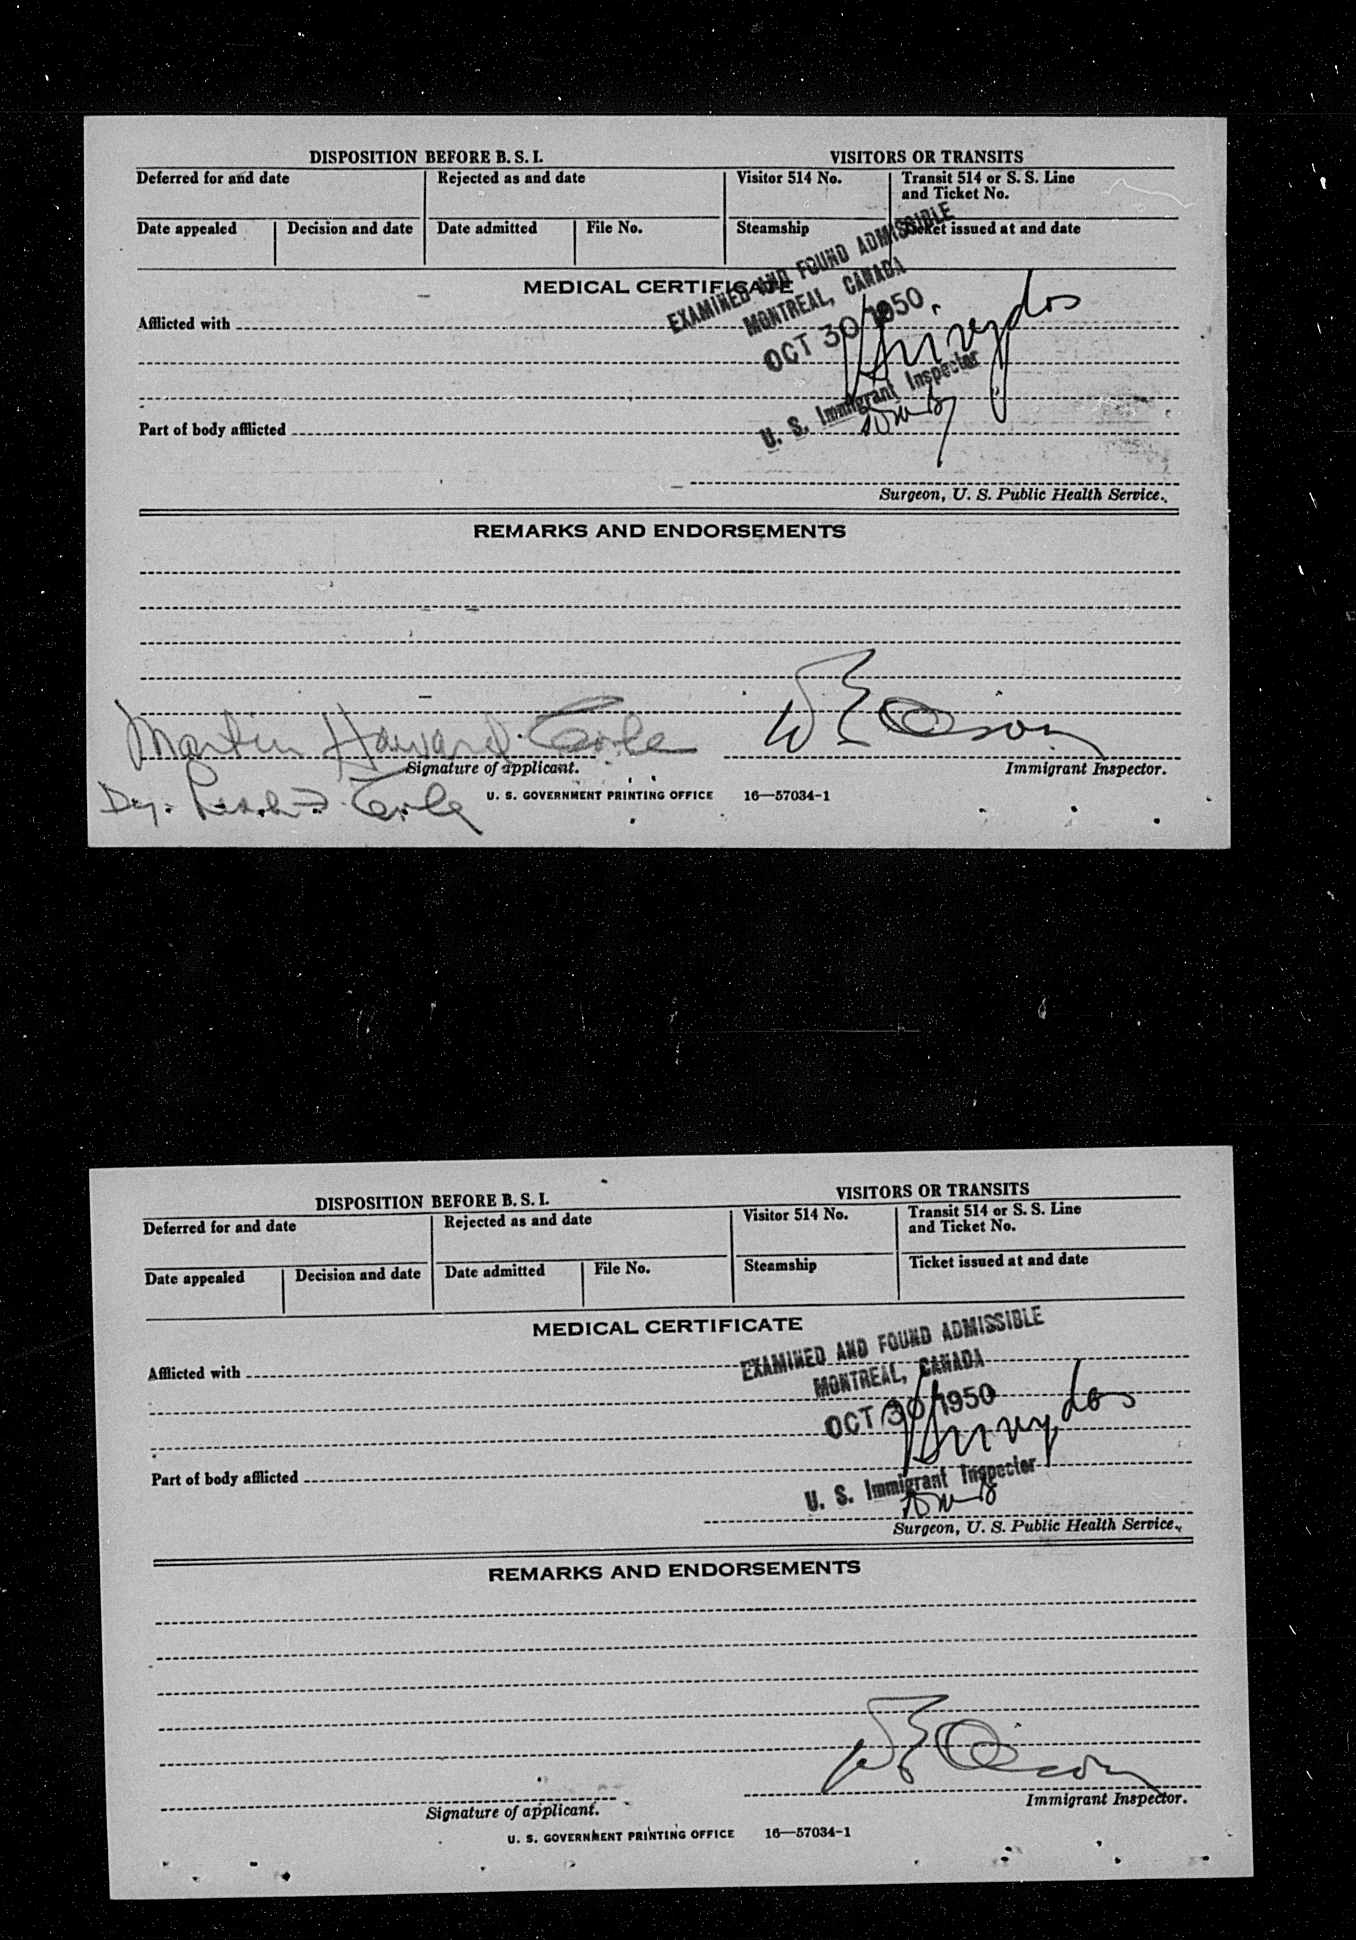 DISPOSITION BEFORE B. S. I. VISITORS OR TRANSITS
Deferred for and date Rejected as and date Visitor 514 No. Transit 514 or S. S. Line
and Ticket No.
Date appealed Decision and date Date admitted File No. Steamship Ticket issued at and date
MEDICAL CERTIFICATE
EXAMINED AND FOUND ADMISSIBLE
MONTREAL, CANADA
OCT 30 1950
U. S. Immigrant Inspector
Afflicted with
Part of body afflicted
Surgeon, U. S. Public Health Service.
REMARKS AND ENDORSEMENTS
Martin Howard
Signature of applicant. Immigrant Inspector.
U. S. GOVERNMENT PRINTING OFFICE 16—57034-1
DISPOSITION BEFORE B. S. I. VISITORS OR TRANSITS
Deferred for and date Rejected as and date Visitor 514 No. Transit 514 or S. S. Line
and Ticket No.
Date appealed Decision and date Date admitted File No. Steamship Ticket issued at and date
MEDICAL CERTIFICATE
EXAMINED AND FOUND ADMISSIBLE
MONTREAL, CANADA
OCT 30 1950
U. S. Immigrant Inspector
Afflicted with
Part of body afflicted
Surgeon, U. S. Public Health Service.
REMARKS AND ENDORSEMENTS
Signature of applicant. Immigrant Inspector.
U. S. GOVERNMENT PRINTING OFFICE 16—57034-1